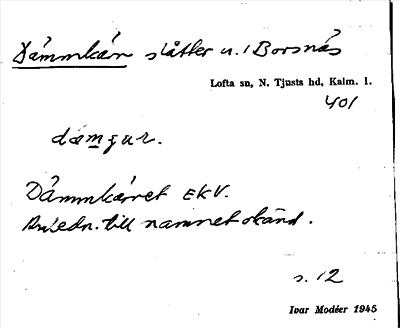 Dämmkärr slåtter u. Borsnäs
Lofta sn, N. Tjusts hd, Kalm. l.
401
Dämmkärret EKV.
Anledn. till namnet okänd.
s. 12
Ivar Modéer 1945